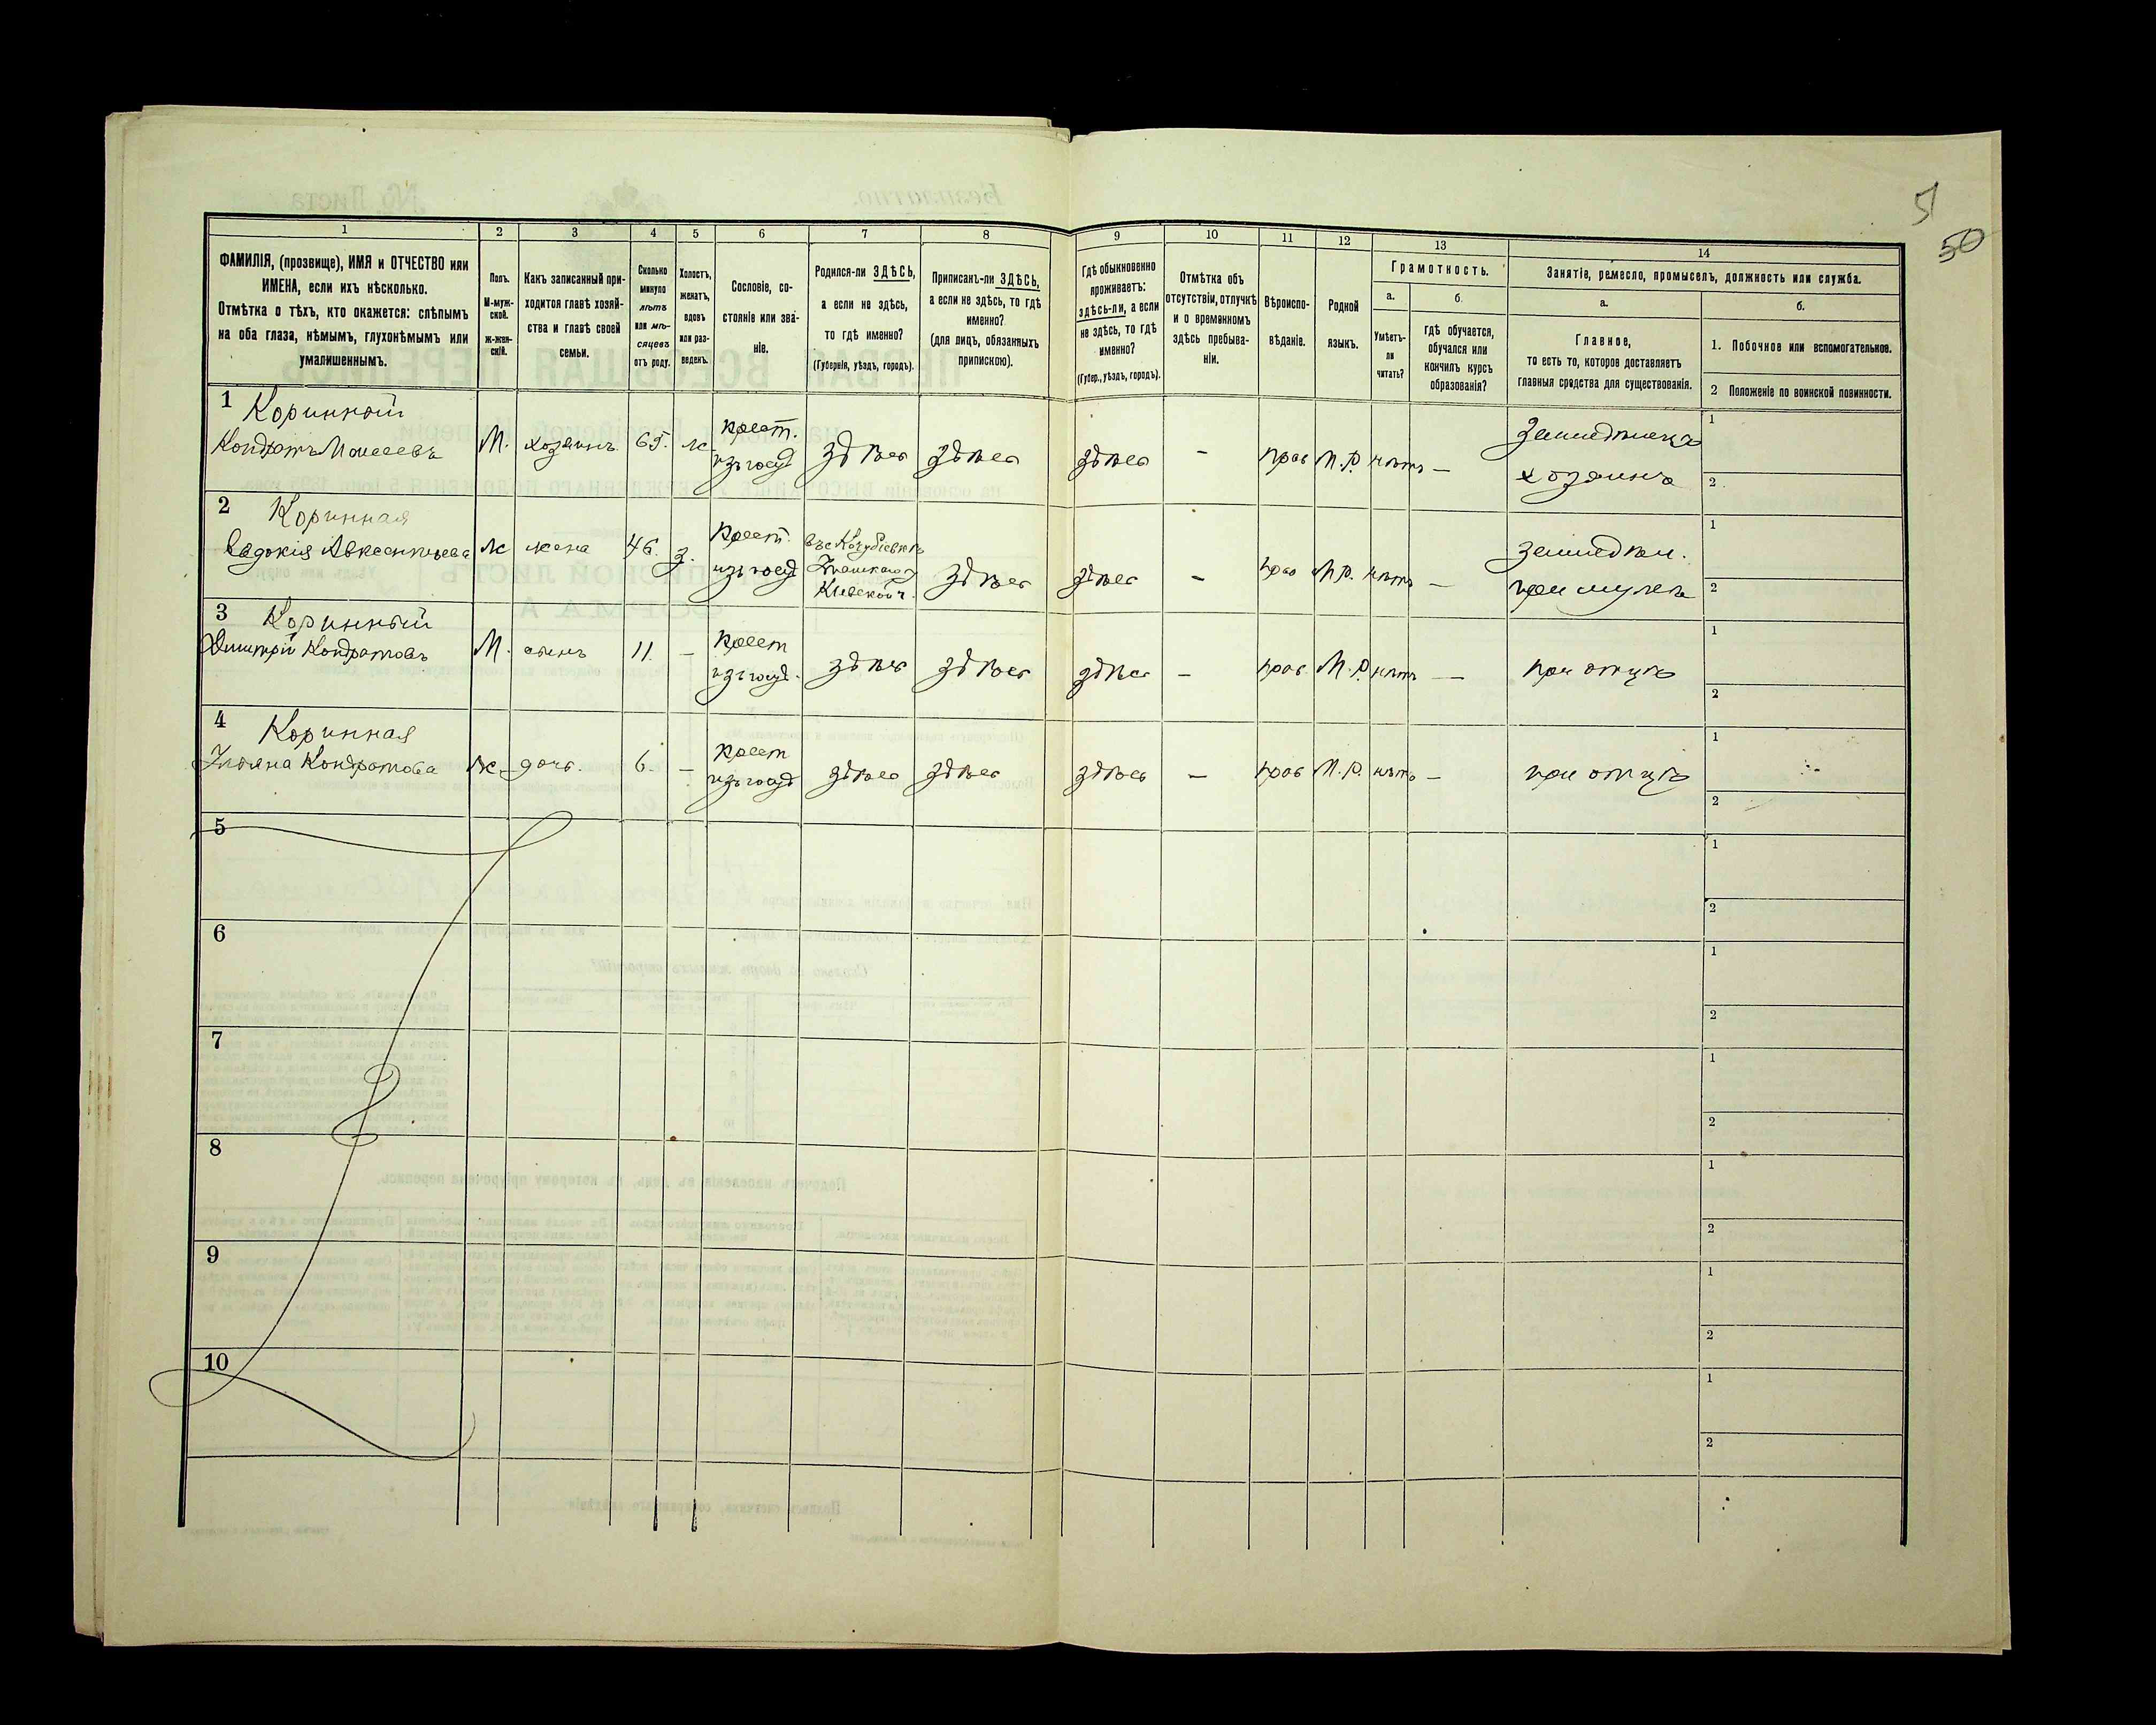 51
50
1 2 3 4 5 6 7 8 9 10 11 12 13 14
ФАМИЛІЯ, (прозвище), ИМЯ и ОТЧЕСТВО или
ИМЕНА, если ихъ нѣсколько.
Отмѣтка о тѣхъ, кто окажется: слѣпымъ
на оба глаза, нѣмымъ, глухонѣмымъ или
умалишеннымъ.
Полъ.
М-муж-
ской.
Ж-жен-
скій.
Какъ записанный при-
ходится главѣ хозяй-
ства и главѣ своей
семьи.
Сколько
минуло
лѣтъ
или мѣ-
сяцевъ
отъ роду.
Холостъ,
женатъ,
вдовъ
или раз-
веденъ.
Сословіе, со-
стояніе или зва-
ніе.
Родился-ли ЗДѢСЬ,
а если не здѣсь,
то гдѣ именно?
(Губернія, уѣздъ, городъ).
Приписанъ-ли ЗДѢСЬ,
а если не здѣсь, то гдѣ
именно?
(для лицъ, обязанныхъ
припискою).
Гдѣ обыкновенно
проживаетъ:
здѣсь-ли, а если
не здѣсь, то гдѣ
именно?
(Губер., уѣздъ, городъ).
Отмѣтка объ
отсутствіи, отлучкѣ
и о временномъ
здѣсь пребыва-
ніи.
Вѣроиспо-
вѣданіе.
Родной
языкъ.
Грамотность.
а.
Умѣетъ-
ли
читать?
б.
гдѣ обучается,
обучался или
кончилъ курсъ
образованія?
Занятіе, ремесло, промыселъ, должность или служба.
а.
Главное,
то есть то, которое доставляетъ
главныя средства для существованія.
б.
1. Побочное или вспомогательное.
2 Положеніе по воинской повинности.
1 Коринной
Кондратъ Моисеевъ М. хозяинъ 65. ж крест.
изъ госуд здѣсь здѣсь здѣсь - прав М.Р. нѣтъ — Земледѣлецъ
хозяинъ
1
2
2 Коринная
Евдокія Авксентьева ж жена 46. з. Крест.
изъ госуд въ с
Кіевской г. здѣсь здѣсь - прав М.Р. нѣтъ — земледѣл.
при мужѣ
1
2
3 Коринный
Дмитрій Кондратовъ М. сынъ 11. - Крест
изъ госуд. здѣсь здѣсь здѣсь - прав. М.Р. нѣтъ — при отцѣ
1
2
4 Коринная
Ульяна Кондратова ж дочь. 6. - крест
изъ госуд здѣсь здѣсь здѣсь - прав М.Р. нѣтъ — при отцѣ
1
2
5
1
2
6
1
2
7
1
2
8
1
2
9
1
2
10
1
2